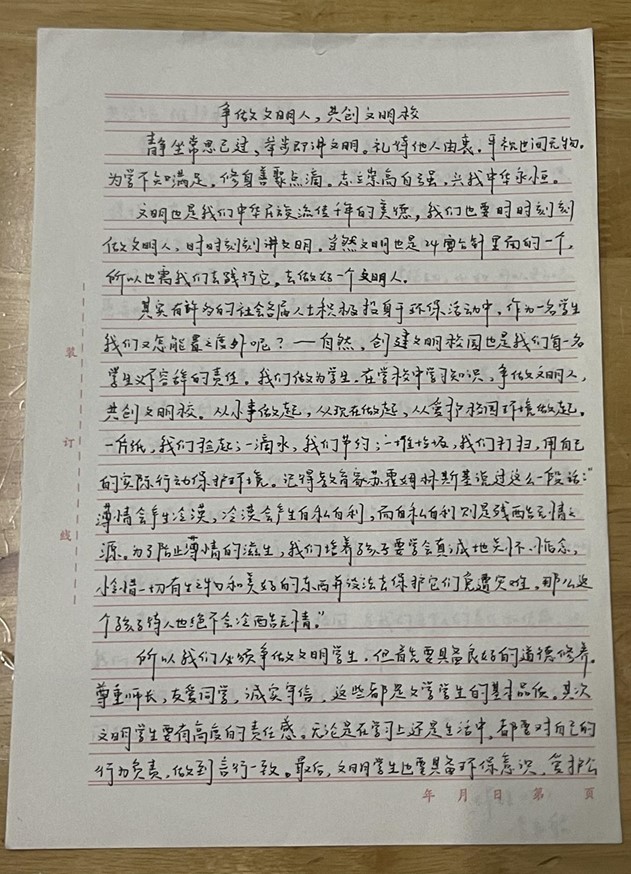 争做文明人，共创文明校
静坐常思己过，举步即讲文明。礼待他人由衷，平视世间无物。
为学不知满足，修身善聚点滴。志立崇高自强，兴我中华永恒。
文明也是我们中华民族流传千年的美德，我们也要时时刻刻
做文明人，时时刻刻讲文明。当然文明也是24字方针里面的一个，
所以也需我们去践行它。去做好一个文明人。
其实有许多的社会各届人士积极投身于环保活动中，作为一名学生
我们又怎能置之度外呢？——自然，创建文明校园也是我们每一名
学生义不容辞的责任。我们做为学生，在学校中学习知识，争做文明人，
共创文明校。从小事做起，从现在做起，从爱护校园环境做起。
一片纸，我们捡起；一滴水，我们节约；一堆垃圾，我们打扫，用自己
的实际行动保护环境。记得教育家苏霍姆林斯基说过这么一段话："
薄情会产生冷漠，冷漠会产生自私自利，而自私自利则是残酷无情之
源。为了防止薄情的滋生，我们培养孩子要学会真诚地关怀、惦念，
怜惜一切有生之物和美好的东西并设法去保护它们免遭灾难，那么这
个孩子待人也绝不会冷酷无情。"
所以我们必须争做文明学生，但首先要具备良好的道德修养。
尊重师长，友爱同学，诚实守信，这些都是文学学生的基本品德。其次
文明学生要有高度的责任感。无论是在学习上还是生活中，都要对自己的
行为负责，做到言行一致。最后，文明学生也要具备环保意识，爱护公
装
订
线
年 月 日 第 页